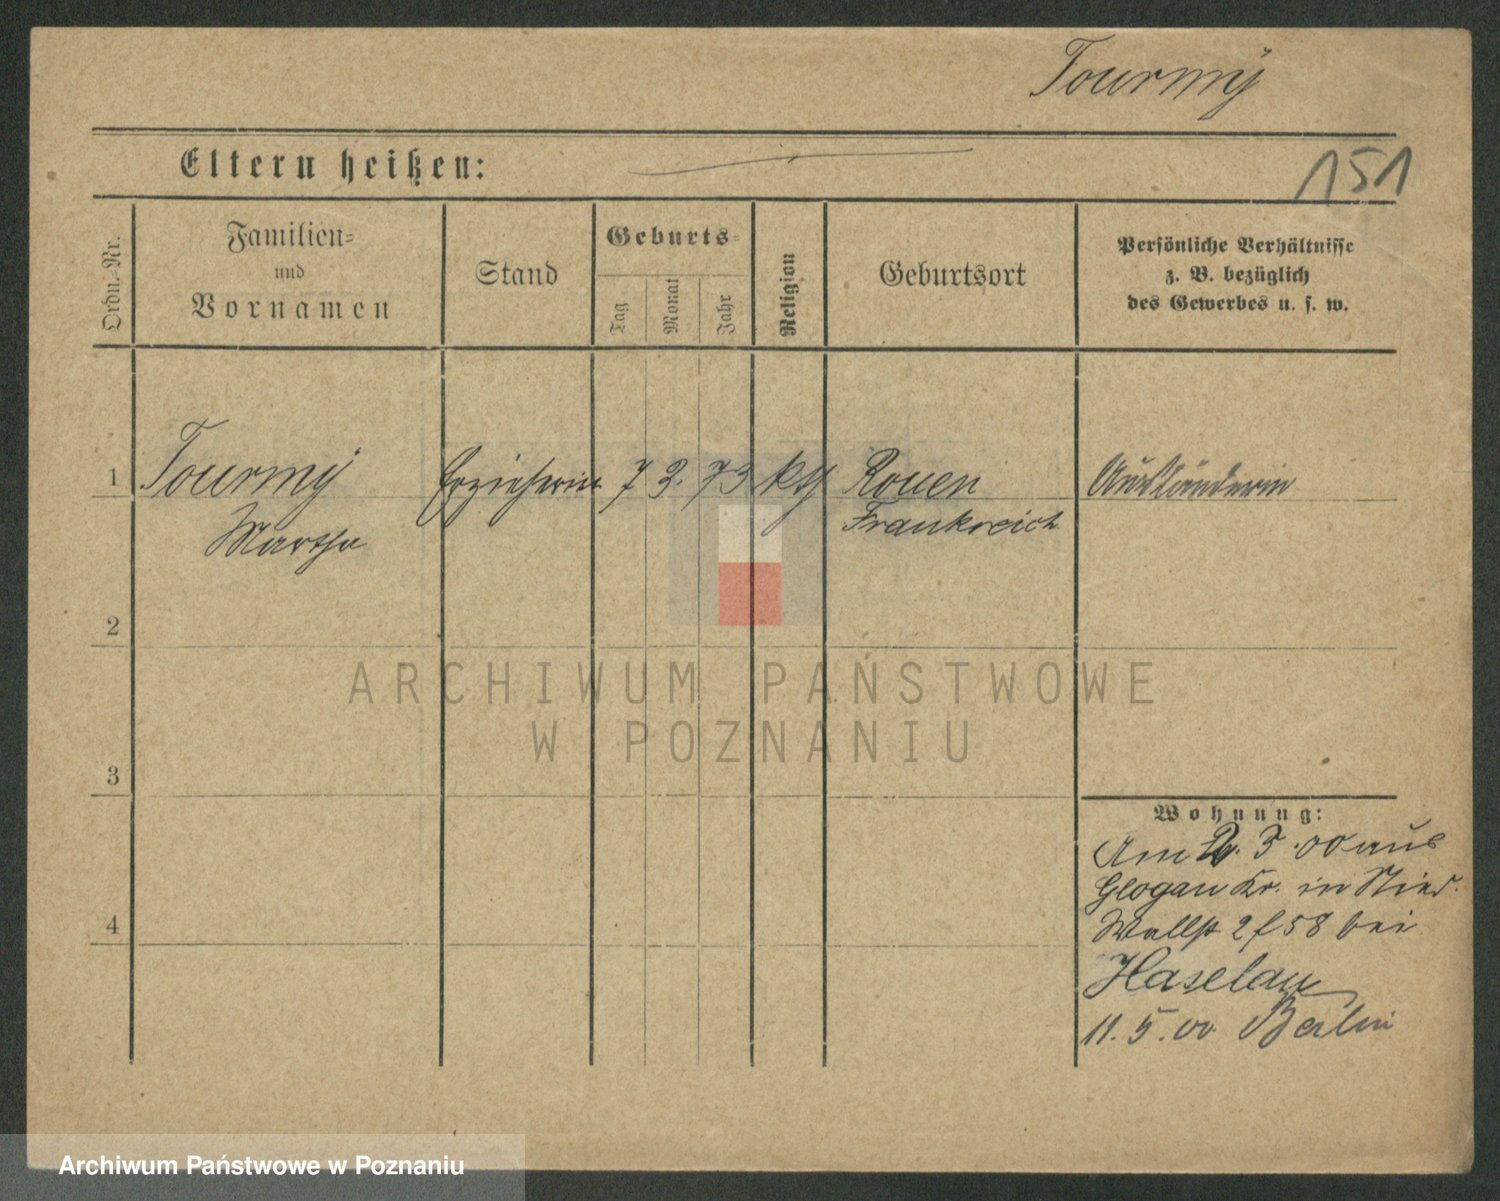 Tourmÿ
Eltern heißen:
151
Ordn.-Nr.
Familien-
und
Vornamen
Stand
Geburts-
Tag
Monat
Jahr
Religion
Geburtsort
Persönliche Verhältnisse
z. B. bezüglich
des Gewerbes u. s. w.
1 Tourmÿ Erzieherin 7 2. 73 kth Rouen Ausländerin
Martha Frankreich
2
ARCHIWUM PAŃSTWOWE
W POZNANIU
3
Wohnung:
Am 2. 3. 00 aus
Glogau Kr. in Nied.
Wallst 2 f 58 bei
4
Haselau
11. 5. 00 Berlin
Archiwum Państwowe w Poznaniu